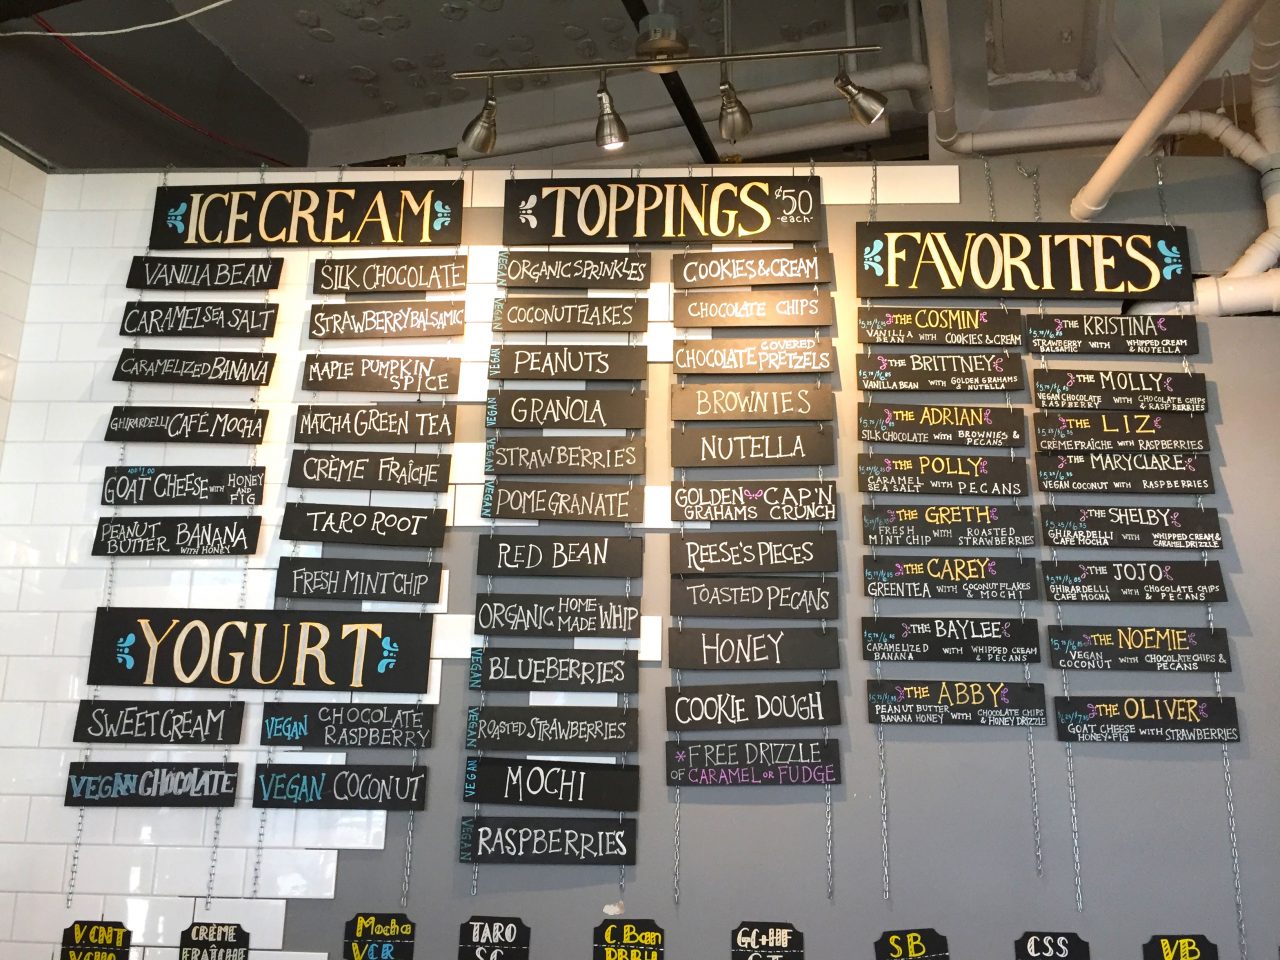 ICE CREAM
VANILLA BEAN
CARAMEL SEA SALT
CARAMELIZED BANANA
GHIRARDELLI CAFÉ MOCHA
ADD $1.00
GOAT CHEESE WITH HONEY AND FIG
PEANUT BUTTER BANANA
WITH HONEY
SILK CHOCOLATE
STRAWBERRY BALSAMIC
MAPLE PUMPKIN
SPICE
MATCHA GREEN TEA
CRÈME FRAÎCHE
TARO ROOT
FRESH MINT CHIP
YOGURT
SWEET CREAM
VEGAN CHOCOLATE
VEGAN CHOCOLATE
RASPBERRY
VEGAN COCONUT
TOPPINGS ¢50
-each-
VEGAN ORGANIC SPRINKLES
VEGAN COCONUT FLAKES
VEGAN PEANUTS
VEGAN GRANOLA
VEGAN STRAWBERRIES
VEGAN POMEGRANATE
RED BEAN
ORGANIC HOME MADE WHIP
VEGAN BLUEBERRIES
VEGAN ROASTED STRAWBERRIES
VEGAN MOCHI
VEGAN RASPBERRIES
COOKIES & CREAM
CHOCOLATE CHIPS
CHOCOLATE COVERED PRETZELS
BROWNIES
NUTELLA
GOLDEN GRAHAMS CAP'N CRUNCH
REESE'S PIECES
TOASTED PECANS
HONEY
COOKIE DOUGH
*FREE DRIZZLE
OF CARAMEL OR FUDGE
FAVORITES
THE COSMIN
VANILLA BEAN WITH COOKIES & CREAM
THE BRITTNEY
VANILLA BEAN WITH GOLDEN GRAHAMS & NUTELLA
THE ADRIAN
SILK CHOCOLATE WITH BROWNIES & PECANS
THE POLLY
CARAMEL SEA SALT WITH PECANS
THE GRETH
FRESH MINT CHIP WITH ROASTED STRAWBERRIES
THE CAREY
GREEN TEA WITH COCONUT FLAKES & MOCHI
THE BAYLEE
CARAMELIZED BANANA WITH WHIPPED CREAM & PECANS
THE ABBY
PEANUT BUTTER BANANA HONEY WITH CHOCOLATE CHIPS & HONEY DRIZZLE
THE KRISTINA
STRAWBERRY BALSAMIC WITH WHIPPED CREAM & NUTELLA
THE MOLLY
VEGAN CHOCOLATE RASPBERRY WITH CHOCOLATE CHIPS & RASPBERRIES
THE LIZ
CRÈME FRAÎCHE WITH RASPBERRIES
THE MARYCLARE
VEGAN COCONUT WITH RASPBERRIES
THE SHELBY
GHIRARDELLI CAFE MOCHA WITH WHIPPED CREAM & CARAMEL DRIZZLE
THE JOJO
GHIRARDELLI CAFE MOCHA WITH CHOCOLATE CHIPS & PECANS
THE NOEMIE
VEGAN COCONUT WITH CHOCOLATE CHIPS & PECANS
THE OLIVER
GOAT CHEESE HONEY+FIG WITH STRAWBERRIES
V CNT
CRÈME
FRAÎCHE
Mocha
VCR
TARO
C Ban
GC+HF
SB
CSS
VB